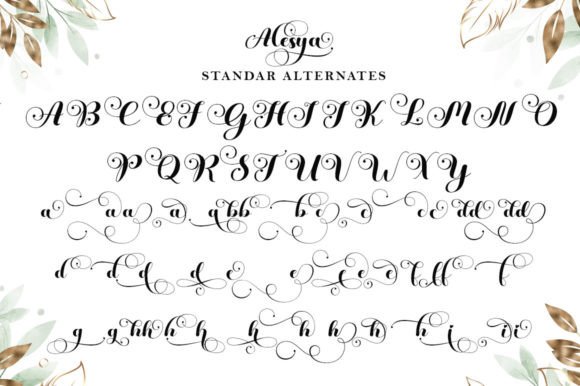 Alesya
STANDAR ALTERNATES
A B C E F G H I J K L M N O
P Q R S T U V W X Y
a a a a a b b b c c c c d d d d
d d d d e e e e e f f f f
g g h h h h h h h h h i i i